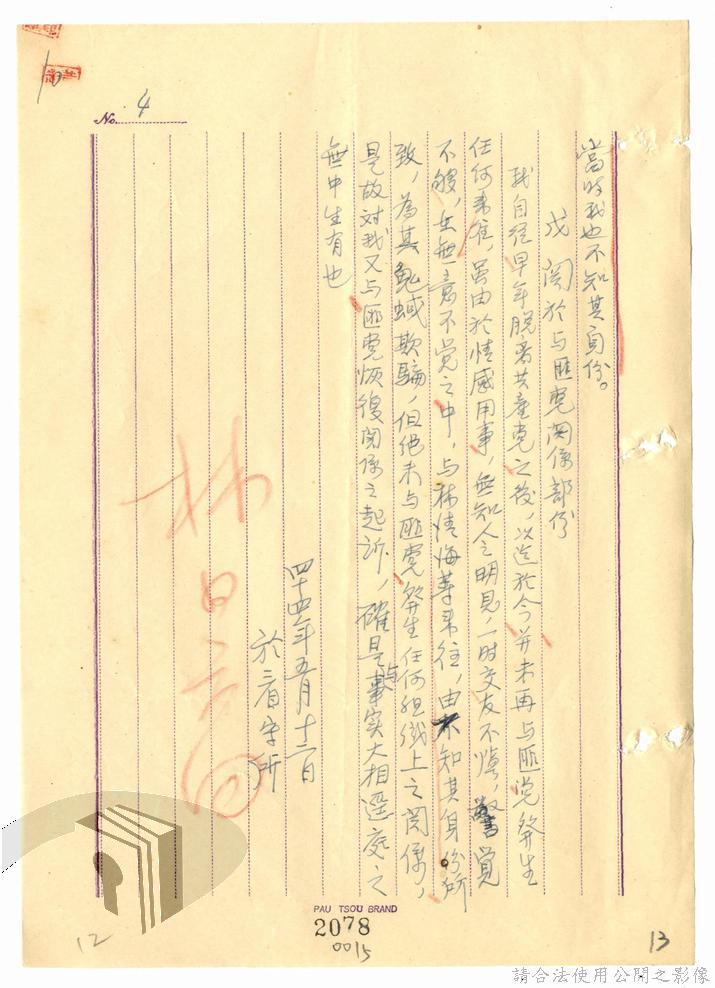 No. 4
當时我也不知其身份。
戊 関於与匪党関係部份
我自從早年脱离共產党之後，以迄於今并未再与匪党發生
任何来往，虽由於情感用事，無知人之明見，一时交友不慎，警覚
不够，在無意不觉之中，与林清海等来往，由不知其身份所
致，為其鬼蜮欺騙，但絕未与匪党發生任何組織上之関係，
是故対我又与匪党恢復関係之起訴，確是与事实大相逕庭之
無中生有也
四十四年五月十二日
於看守所
PAU TSOU BRAND
2078
0015
12
13
請合法使用公開之影像